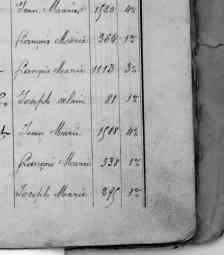 Jean Marie 1520 4%
François Marie 364 1%
François Marie 1112 3%
Joseph alain 81 1%
Jean Marie 1508 4%
François Marie 338 1%
Joseph Marie 295 1%